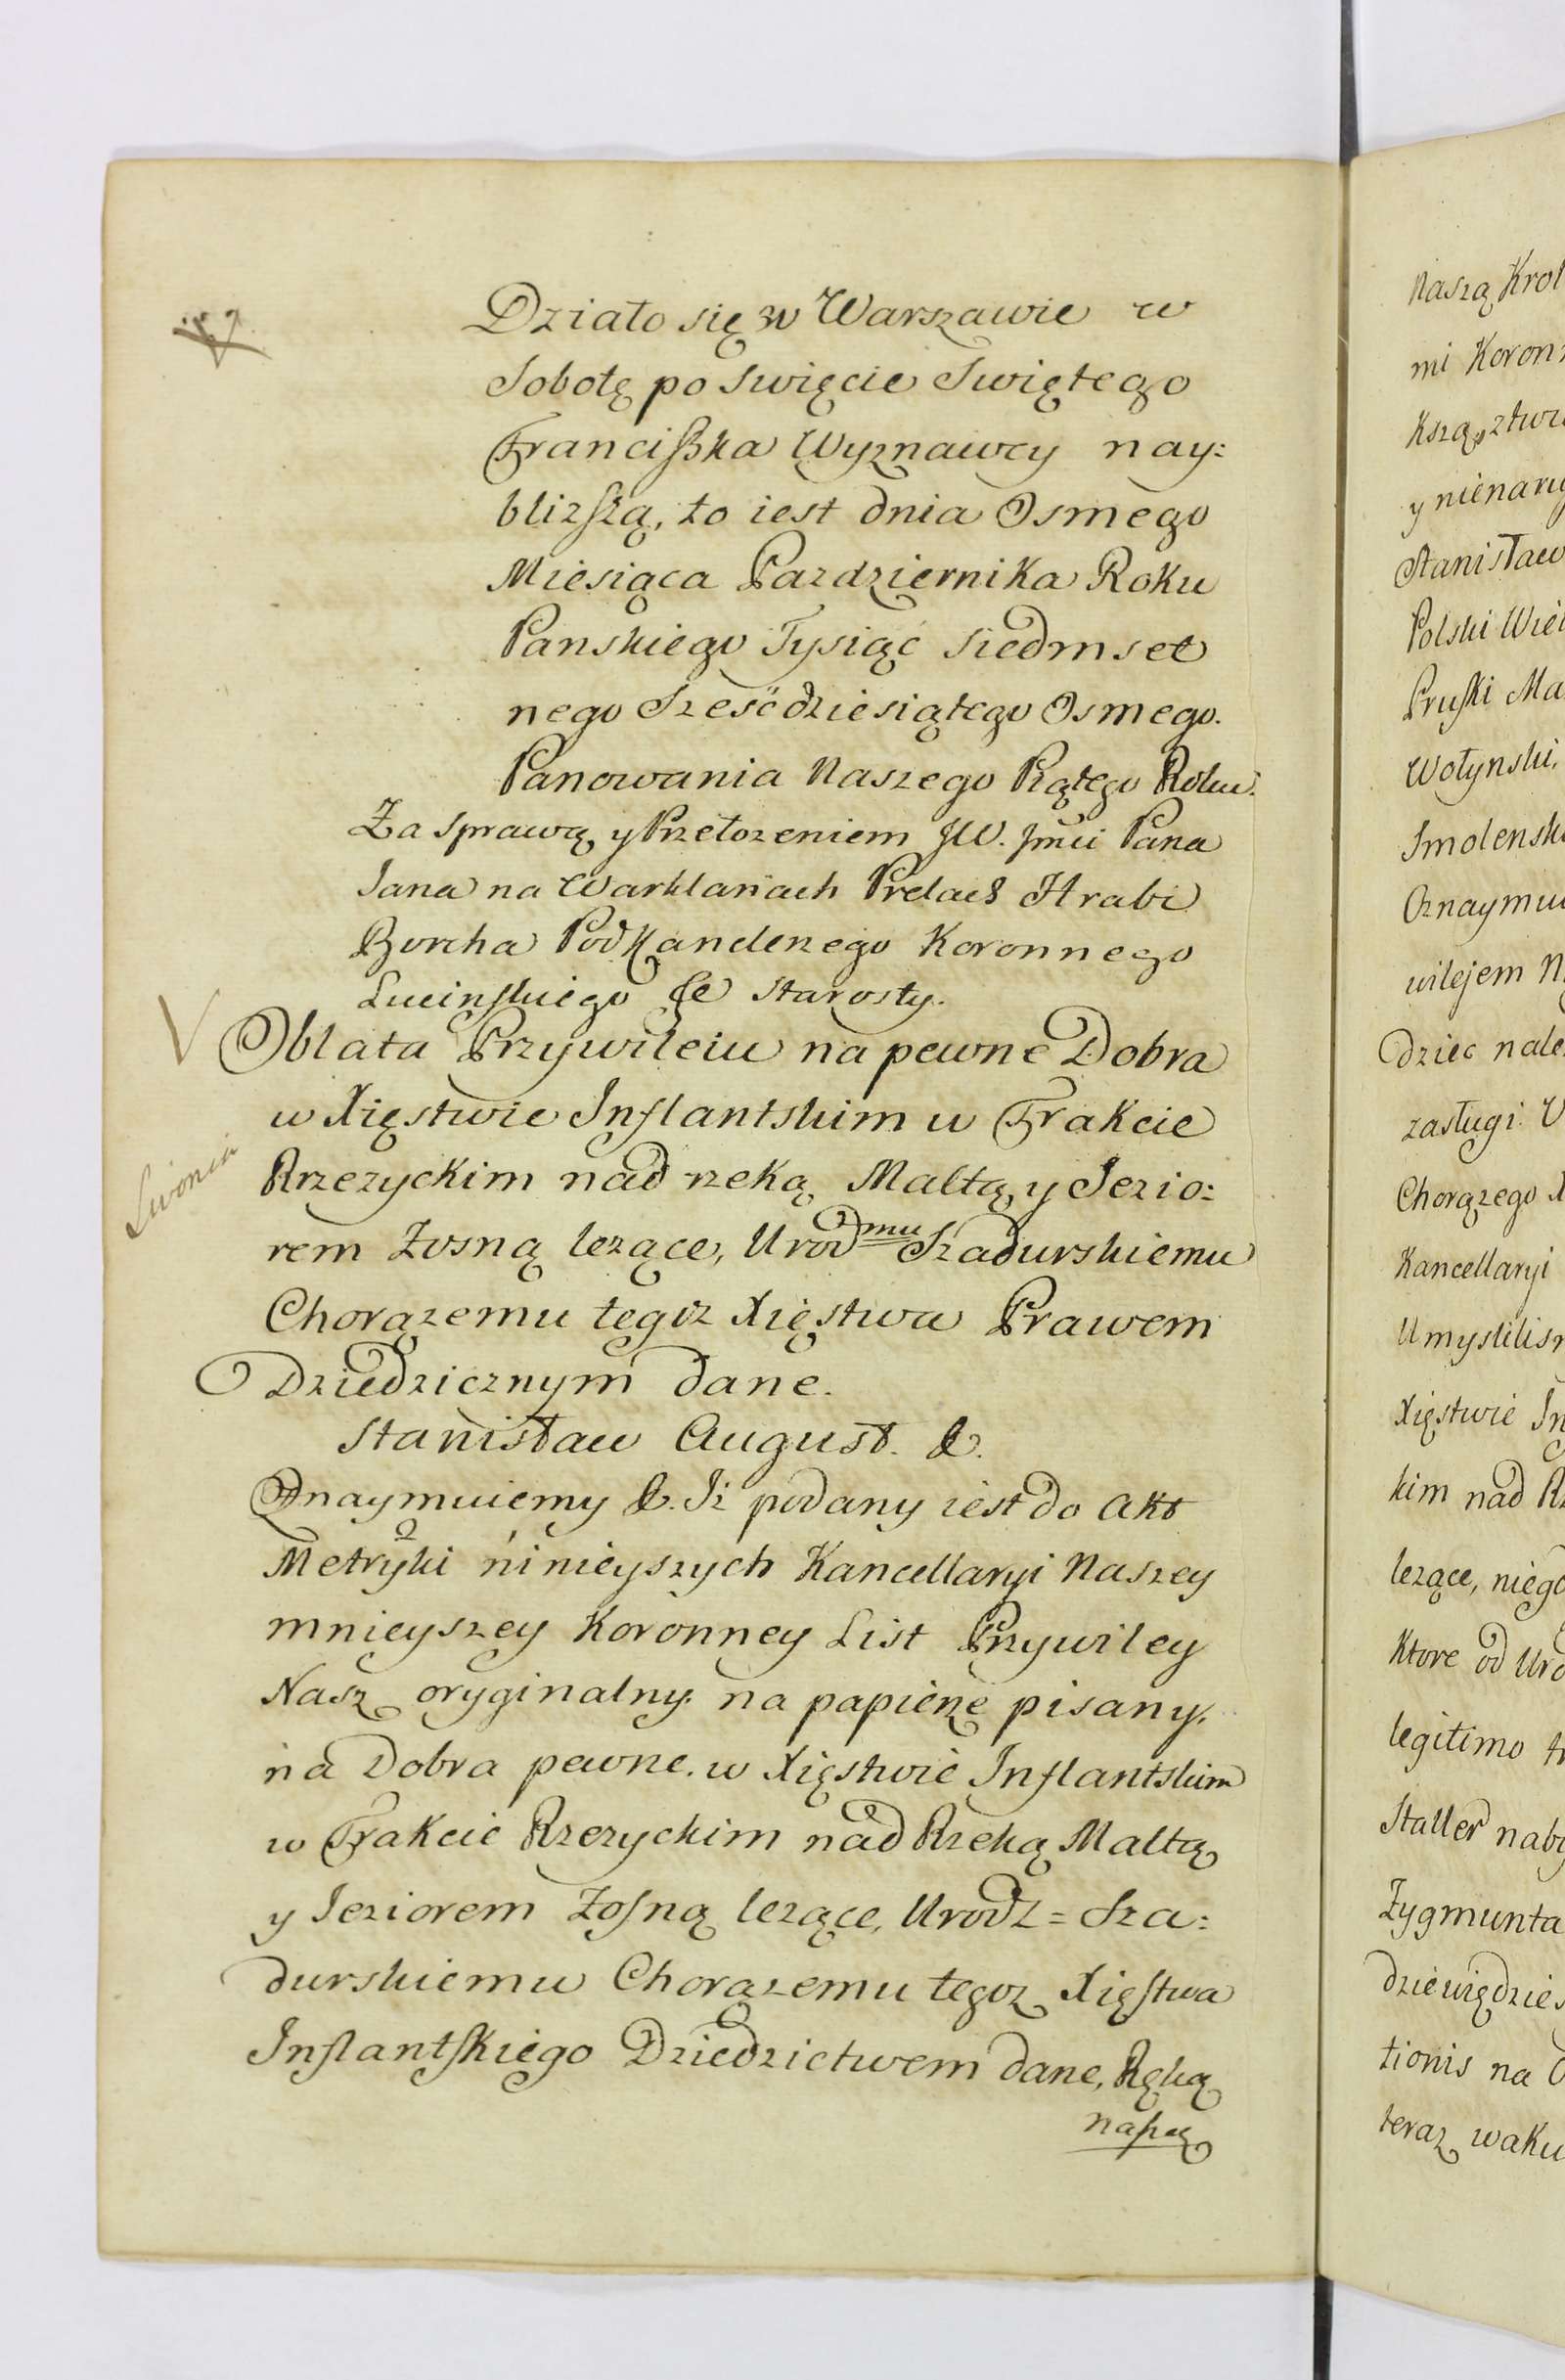 Działo się w Warszawie w
Sobotę po Swięcie Swiętego
Franciszka Wyznawcy nay:
blizszą, to iest dnia Osmego
Miesiąca Pazdziernika Roku
Panskiego Tysiąć Siedmset
nego Sześćdziesiątego Osmego.
Panowania Naszego Piątego Roku.
Za sprawą y Przełozeniem JW. Jmci Pana
Jana na Warklanach Prelach Hrabi
Borcha Podkanclerzego Koronnego
Lucinskiego &c Starosty.
Oblata Przywileiu na pewne Dobra
w Xięstwie Inflantskim w Trakcie
Livonia
Rzezyckim nad rzeką Maltą, y Jezio:
rem Zosną lezące, Urod mu Szadurskiemu
Chorązemu tegoz Xięstwa Prawem
Dziedzicznym dane.
Stanisław August. &.
Oznaymuiemy &. Iż podany iest do Akt
Metryki ninieyszych Kancellaryi Naszey
mnieyszey Koronney List Przywiley
Nasz oryginalny na papierze pisany,
na Dobra pewne. w Xięstwie Inflantskim
w Trakcie Rzezyckim nad Rzeką Maltą
y Jeziorem Zosną lezące, Urodz = Sza:
durskiemu Chorązemu tegoz Xięstwa
Inflantskiego Dziedzictwem dane, Ręką
naszą
Naszą Krol
mi Koron
Ksząztwa
y nienaru
Stanisław
Polski Wiel
Pruski Ma
Wołynski,
Smolensk
Oznaymu
wilejem N
dziec nale
zasługi U
Chorązego X
Kancellaryi
Umyslilis
Xięstwie In
kim nad Rz
lezące, niego
Ktore od Uro
legitimo ti
Staller naby
Zygmunta
dziewiędzies
tionis na
teraz waku